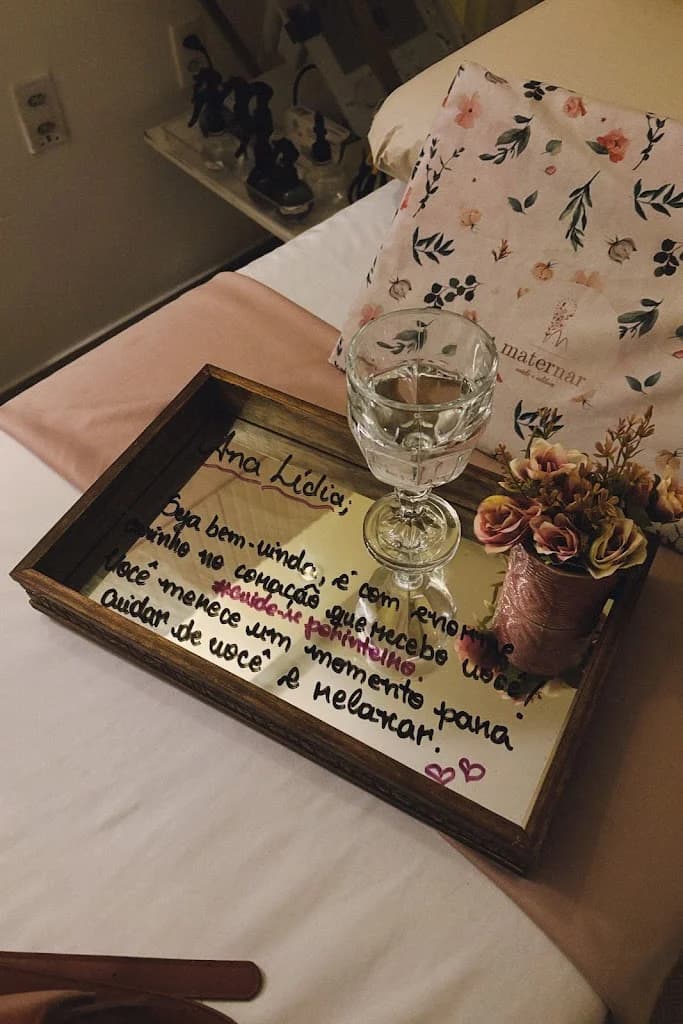 maternar
Ana Lídia;
Seja bem-vinda, é com enorme
carinho no coração que recebo você!
#cuide-se porinteiro.
Você merece um momento para
cuidar de você e relaxar.